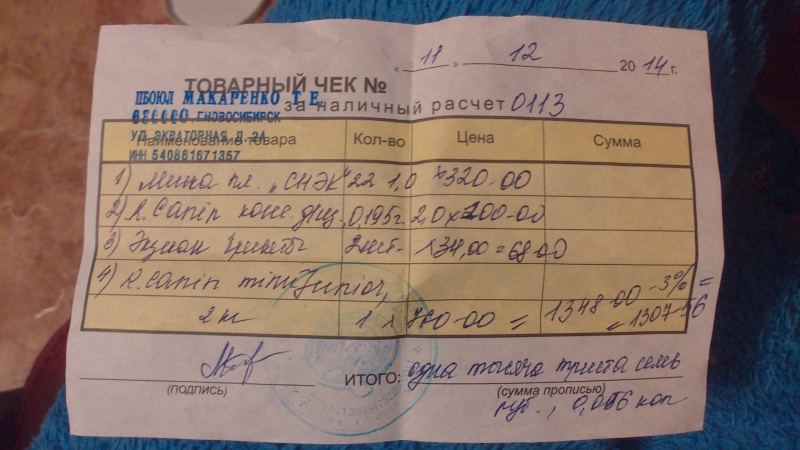 « 11 » 12 2014 г.
ТОВАРНЫЙ ЧЕК №
за наличный расчет 0113
ПБОЮЛ МАКАРЕНКО Т.Е.
630000, Г.НОВОСИБИРСК
УЛ. ЭКВАТОРНАЯ Д. 2А
ИНН 540861671357
Наименование товара Кол-во Цена Сумма
1) Миска пл. „СНЭК" 22 1,0 х320-00
2) R.Canin конс. 0,195г. 2,0 х 100-00
3) 2шт. х34,00 = 68-00
4) R.Canin mini Junior,
2 кг 1 х 760-00 = 1348-00 -3% =
= 1307-56
(ПОДПИСЬ)
ИТОГО: одна тысяча триста семь
(сумма прописью)
руб., 0,056 коп